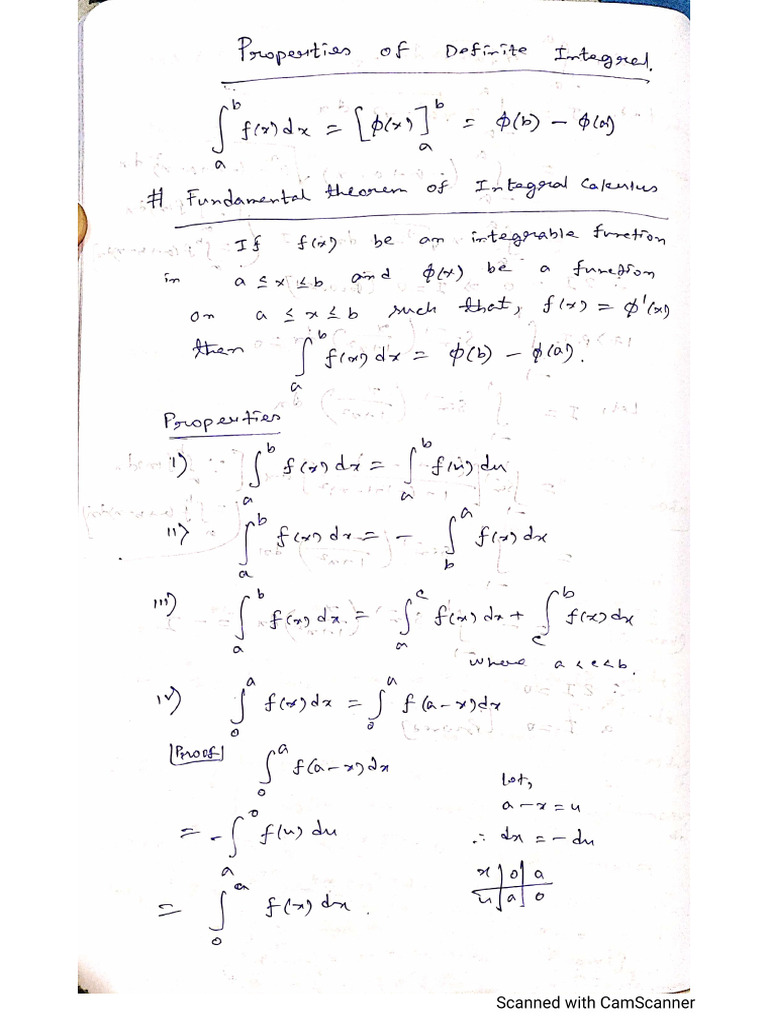 Properties of Definite Integral.
∫_a^b f(x) dx = [ϕ(x)]_a^b = ϕ(b) − ϕ(a)
# Fundamental theorem of Integral Calculus
If f(x) be an integrable function
in a ≤ x ≤ b and ϕ(x) be a function
on a ≤ x ≤ b such that, f(x) = ϕ'(x)
then ∫_a^b f(x) dx = ϕ(b) − ϕ(a).
Properties
i) ∫_a^b f(x) dx = ∫_a^b f(u) du
ii) ∫_a^b f(x) dx = − ∫_b^a f(x) dx
iii) ∫_a^b f(x) dx = ∫_a^c f(x) dx + ∫_c^b f(x) dx
where a < c < b.
iv) ∫_0^a f(x) dx = ∫_0^a f(a−x) dx
Proof ∫_0^a f(a−x) dx
= −∫_a^0 f(u) du
= ∫_0^a f(x) dx.
Let,
a − x = u
∴ dx = − du
x | 0 | a
u | a | 0
Scanned with CamScanner